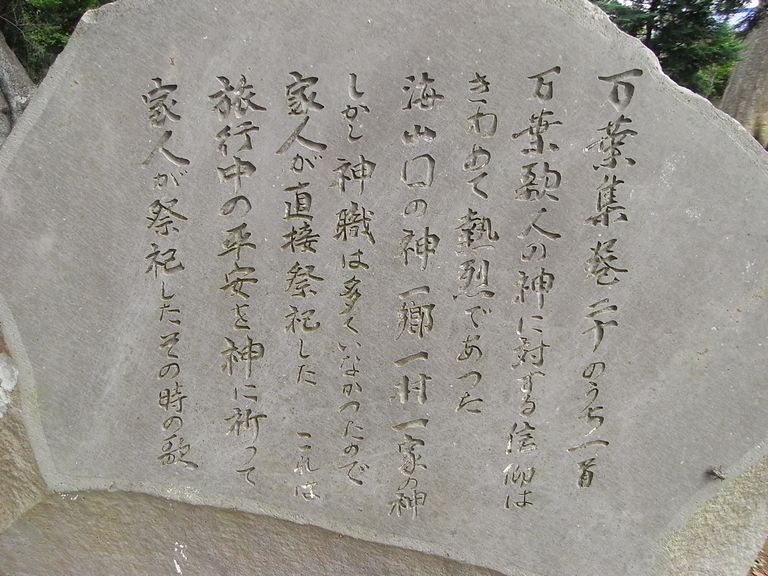 万葉集巻二十のうち一首
万葉歌人の神に対する信仰は
きわめて熱烈であつた
海山口の神一郷一村一家の神
しかし神職は多くいなかつたので
家人が直接祭祀した これは
旅行中の平安を神に祈って
家人が祭祀したその時の歌